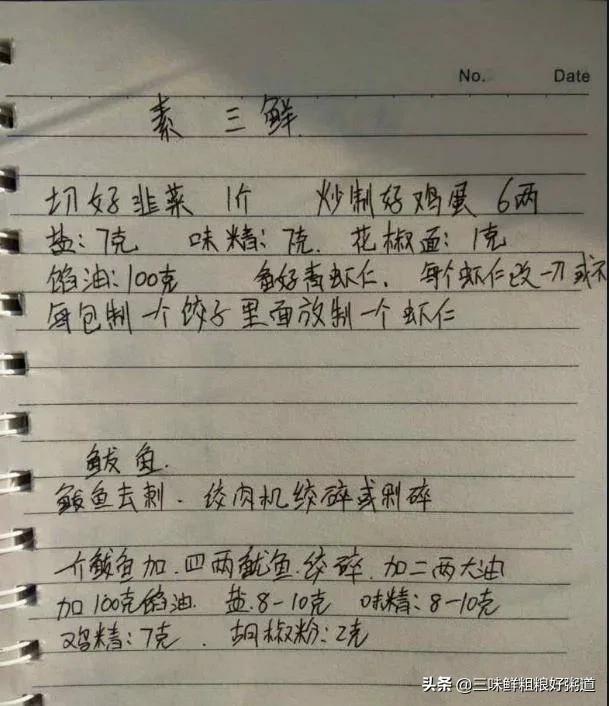 No. Date
素三鲜
切好韭菜 1斤 炒制好鸡蛋 6两
盐:7克 味精:7克. 花椒面:1克
馅油:100克 好青虾仁. 每个虾仁改一刀或不
每包制一个饺子里面放制一个虾仁
鲅鱼.
鲅鱼去刺. 绞肉机绞碎或剁碎
斤鲅鱼加.四两鱿鱼.绞碎.加二两大油
加100克馅油. 盐.8-10克 味精:8-10克
鸡精:7克. 胡椒粉:2克
头条 @三味鲜粗粮好粥道